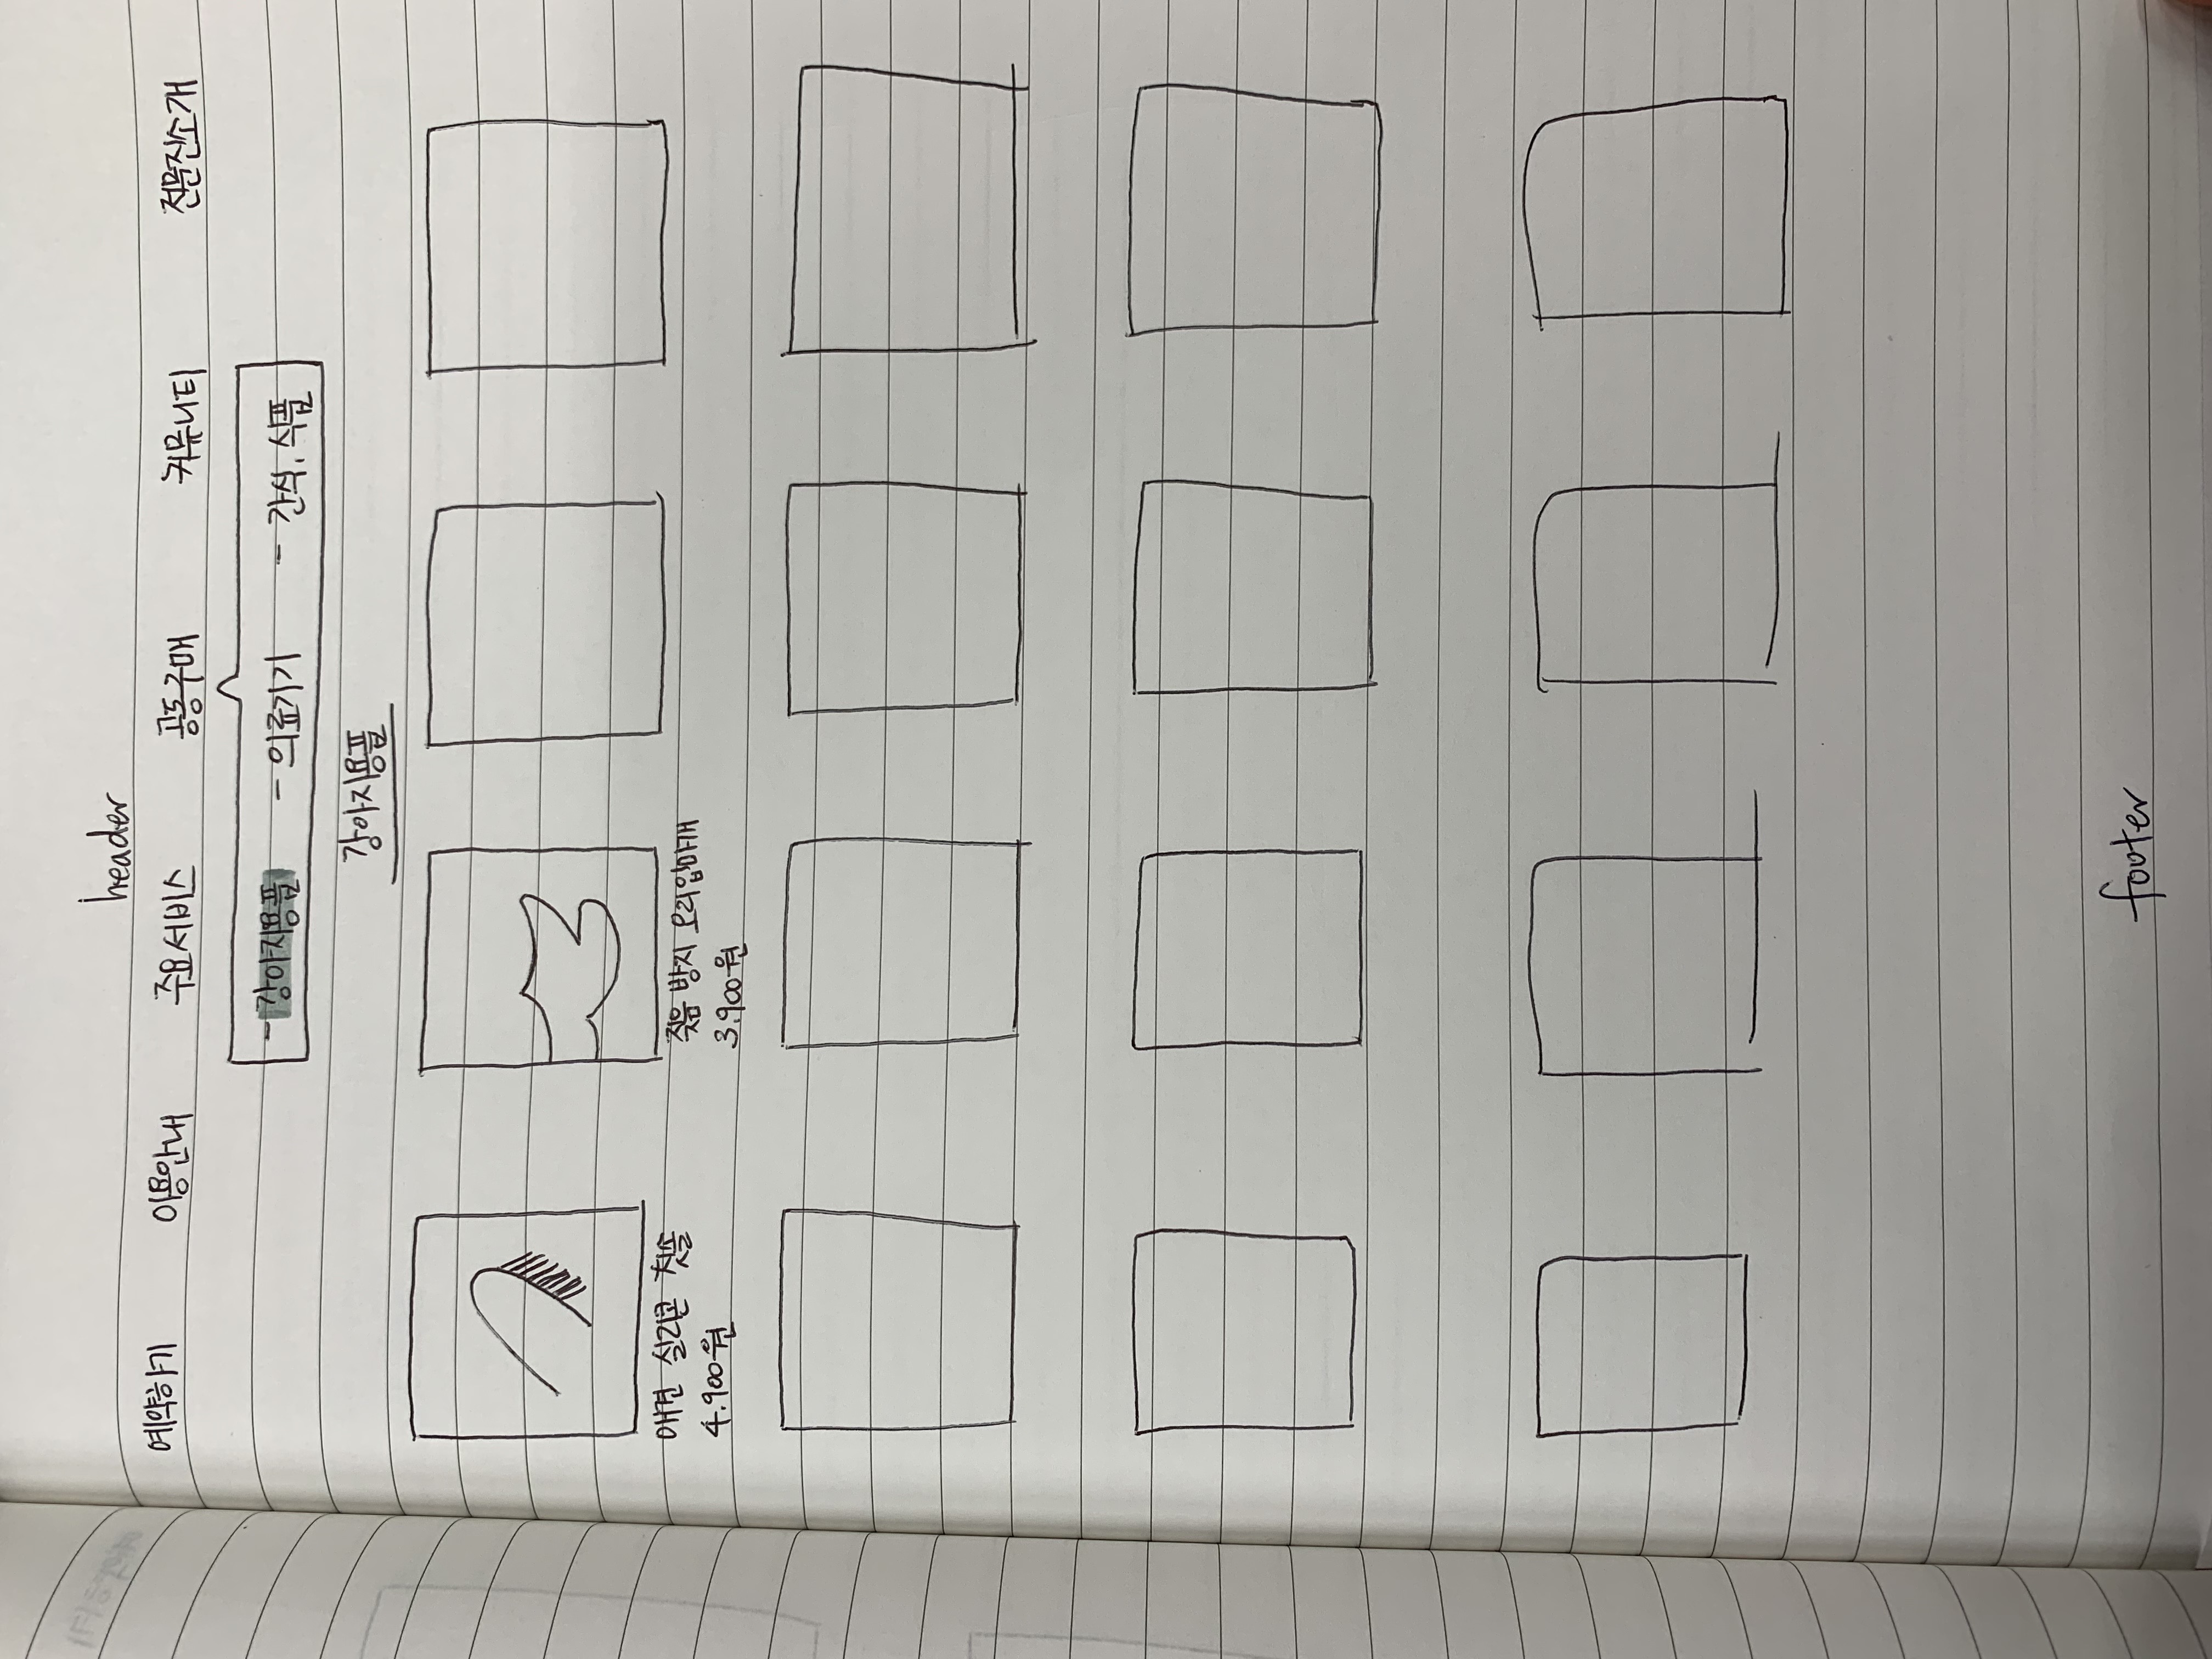 header
예약하기 이용안내 주요서비스 공동구매 커뮤니티 전문진소개
- 강아지용품 - 의료기기 - 간식, 식품
강아지용품
애견 실리콘 칫솔
4.900원
짖음 방지 오리입마개
3.900원
footer